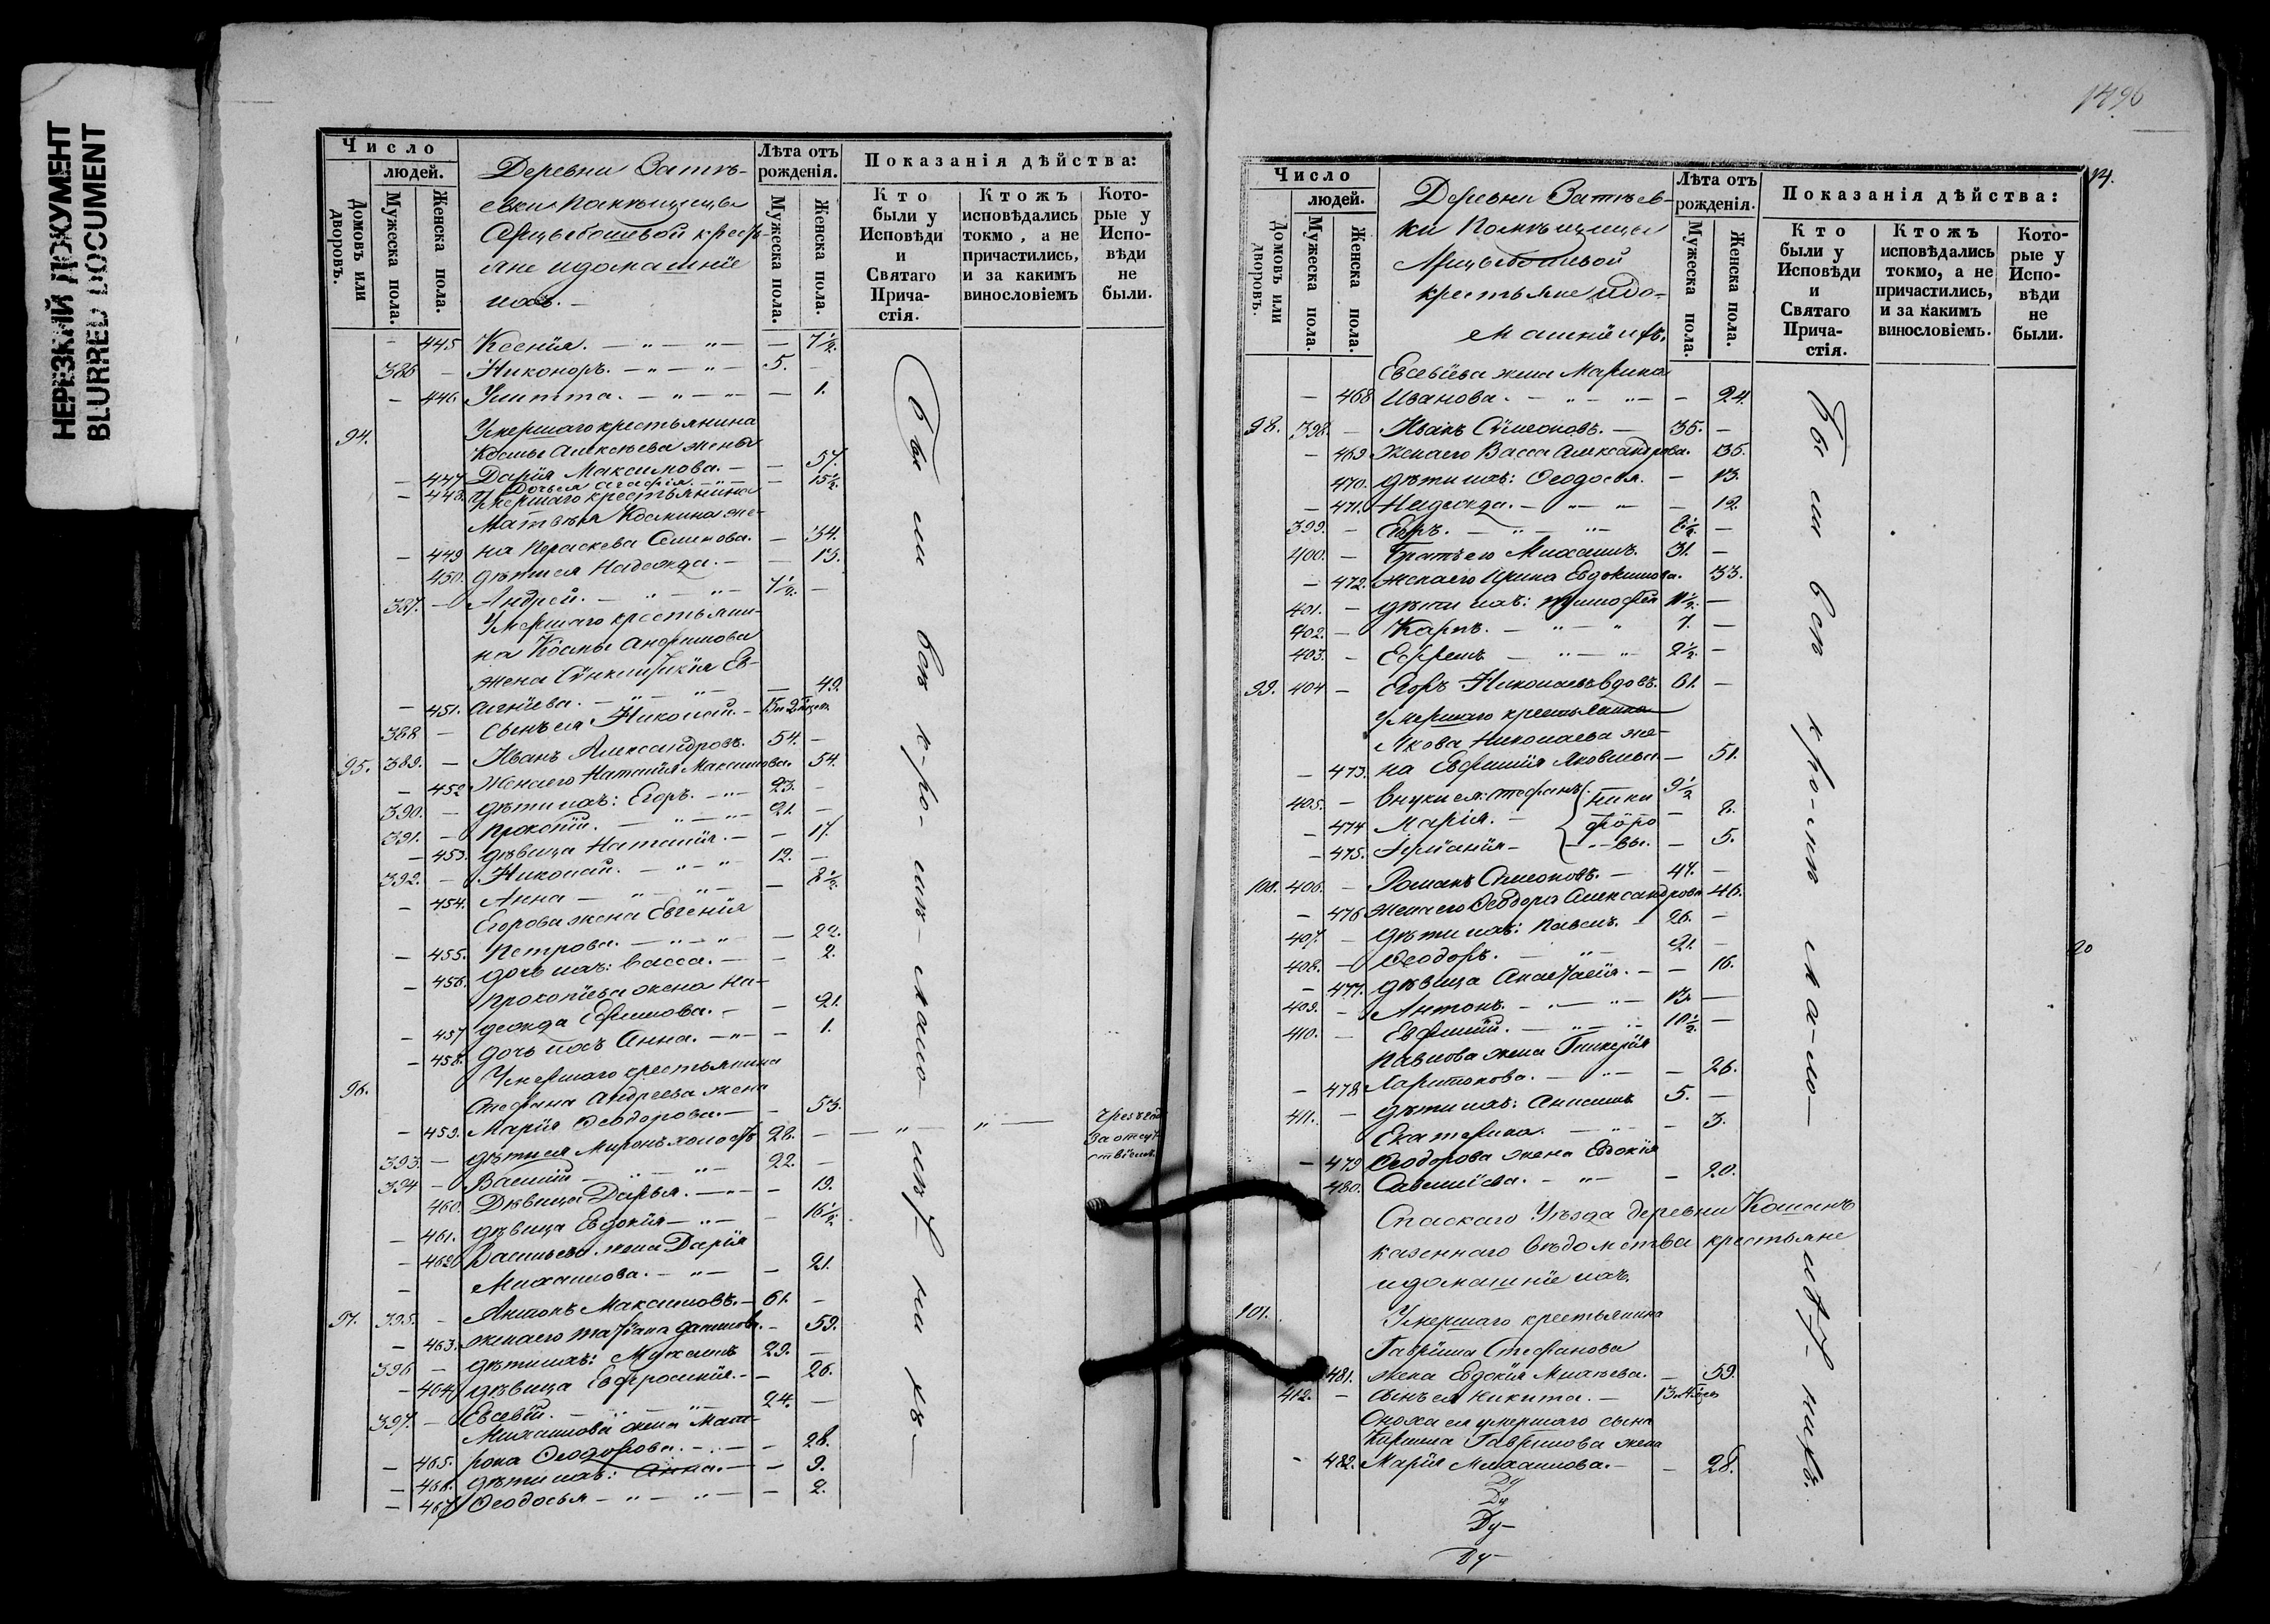 НЕРЕЗКИЙ ДОКУМЕНТ
BLURRED DOCUMENT
Число
людей.
Домовъ или дворовъ.
Мужеска пола.
Женска пола.
Деревни Затѣ-
евки Помѣщицы
Арцыбошевой кресть-
яне и домашніе
ихъ. -
Лѣта отъ рожденія.
Мужеска пола.
Женска пола.
Показанія дѣйства:
Кто были у Исповѣди и Святаго Причастія.
Ктожъ исповѣдались токмо, а не причастились, и за какимъ винословіемъ
Которые у Исповѣди не были.
- 445 Ксенія. - - 7½.
385 - Никоноръ. - 5. -
- 446 Улитта. - - 1.
94. Умершаго крестьянина
Космы Алексѣева жена
- 447 Дарія Максимова. - - 57.
- 448. Дочь ея Агафія. - - 15½.
Умершаго крестьянина
Матвѣя Космина же-
- 449 на Параскева Семенова. - 34.
450. дѣти ея Надежда. - - 13.
387. - Андрей. - 7½. -
Умершаго крестьяни-
на Космы Анфимова
жена Сѵнклитикія Ев-
- 451. - 49.
388 - Сынъ ея Николай. -
95. 389. - Иванъ Александровъ. 54. -
- 452 Жена его Наталія Максимова. 54.
390. - дѣти ихъ: Егоръ. - 23. -
391. - Прокопій. - 21. -
- 453. дѣвица Наталія. - - 17.
392. - Николай. - 12. -
- 454. Анна - - 8½.
Егорова жена Евгенія
- 455. Петрова. - - 22.
- 456. дочь ихъ: Васса. - - 2.
Прокопіева жена На-
- 457 дежда Ефимова. - - 21.
- 458. дочь ихъ Анна. - - 1.
96. Умершаго крестьянина
Стефана Андреева жена
- 459. Марія Ѳеодорова. - - 53.
393. - дѣти ея Миронъ холостъ 28. -
чрезъ
за отсут-
ствіемъ.
394 - Василій - 22. -
460. Дѣвица Дарья. - - 19.
- 461. дѣвица Евдокія - - 16½.
- 462 Васильева жена Дарія
- Михаилова. - - 21.
97. 395. - Антонъ Максимовъ. - 61. -
- 463. жена его Татіана Данилова. - 59.
396 - дѣти ихъ: Михаилъ 29. -
- 464 дѣвица Евфросинія. - - 26.
397. - Евсевій. - 24. -
Михаилова жена Мат-
- 465. рона Ѳеодорова. - - 28.
- 466. дѣти ихъ: Анна. - - 9.
- 467 Ѳеодосья - - 2.
Были всѣ кро-
1496
14.
Число
людей.
Домовъ или дворовъ.
Мужеска пола.
Женска пола.
Деревни Затѣев-
ки Помѣщицы
Арцыбошевой
крестьяне и до-
машніе ихъ.
Лѣта отъ рожденія.
Мужеска пола.
Женска пола.
Показанія дѣйства:
Кто были у Исповѣди и Святаго Причастія.
Ктожъ исповѣдались токмо, а не причастились, и за какимъ винословіемъ.
Которые у Исповѣди не были.
Евсевіева жена Марина
- 468 Иванова. - - 24.
98. 398. - Иванъ Сѵмеоновъ. - 35. -
- 469 Жена его Васса Александрова. 35.
470. дѣти ихъ: Ѳеодосья. - 13.
- 471. Надежда. - - 12.
399. - 8½. -
400. - Братъ его Михаилъ. 31. -
- 472. Жена его Ирина Евдокимова. 33.
401. - дѣти ихъ: Тимофей 11½. -
402. - Карпъ. - 7. -
403. - Ефремъ - 2½. -
99. 404 - Егоръ Николаевъ вдовъ. 61. -
Умершаго крестьянина
Якова Николаева же-
- 473. на Евфимія Яковлева - 51.
405. - внуки ея: Стефанъ Ники 9½
- 474 Марія. - форо - 8.
- 475. - вы. - 5.
100. 406. - Романъ Сѵмеоновъ. - 47. -
- 476 Жена его Ѳеодора Александрова 46.
407. - дѣти ихъ: Павелъ. - 26. -
408. - Ѳеодоръ. - 21. -
- 477. дѣвица Анастасія. - - 16.
409. - Антонъ. - 13. -
410. - Евфимій. - 10½. -
Павлова жена Гликерія
- 478 Харитонова. - - 26.
411. - дѣти ихъ: Анисимъ 5. -
Екатерина. - - 3.
- 479 Ѳеодорова жена Евдокія
480. Савеліева. - - 20.
Спаскаго Уѣзда деревни
казеннаго вѣдомства крестьяне
и домашніе ихъ.
101. Умершаго крестьянина
Гавріила Стефанова
481. жена Евдокія - 59.
412. - Сынъ ея Никита. -
Сноха ея умершаго сына
Кирилла Гаврилова жена
- 482. Марія Михаилова. - - 28.
20